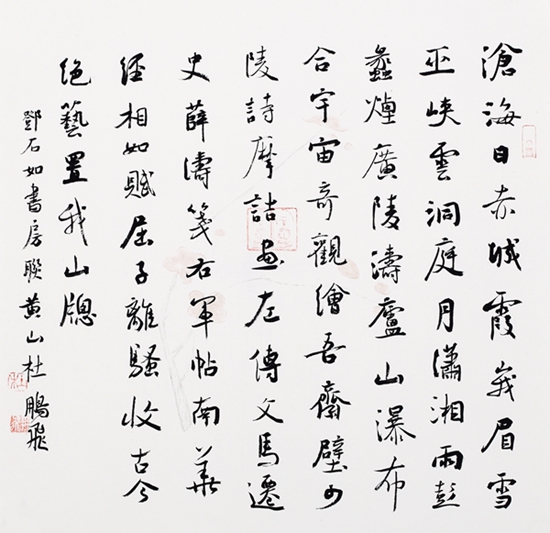 滄海日赤城霞峩眉雪
巫峽雲洞庭月瀟湘雨彭
蠡煙廣陵濤廬山瀑布
合宇宙奇觀繪吾齋壁少
陵詩摩詰畫左傳文馬遷
史薛濤箋右軍帖南華
經相如賦屈子離騷收古今
絕藝置我山牕
鄧石如書房聯黄山杜鵬飛